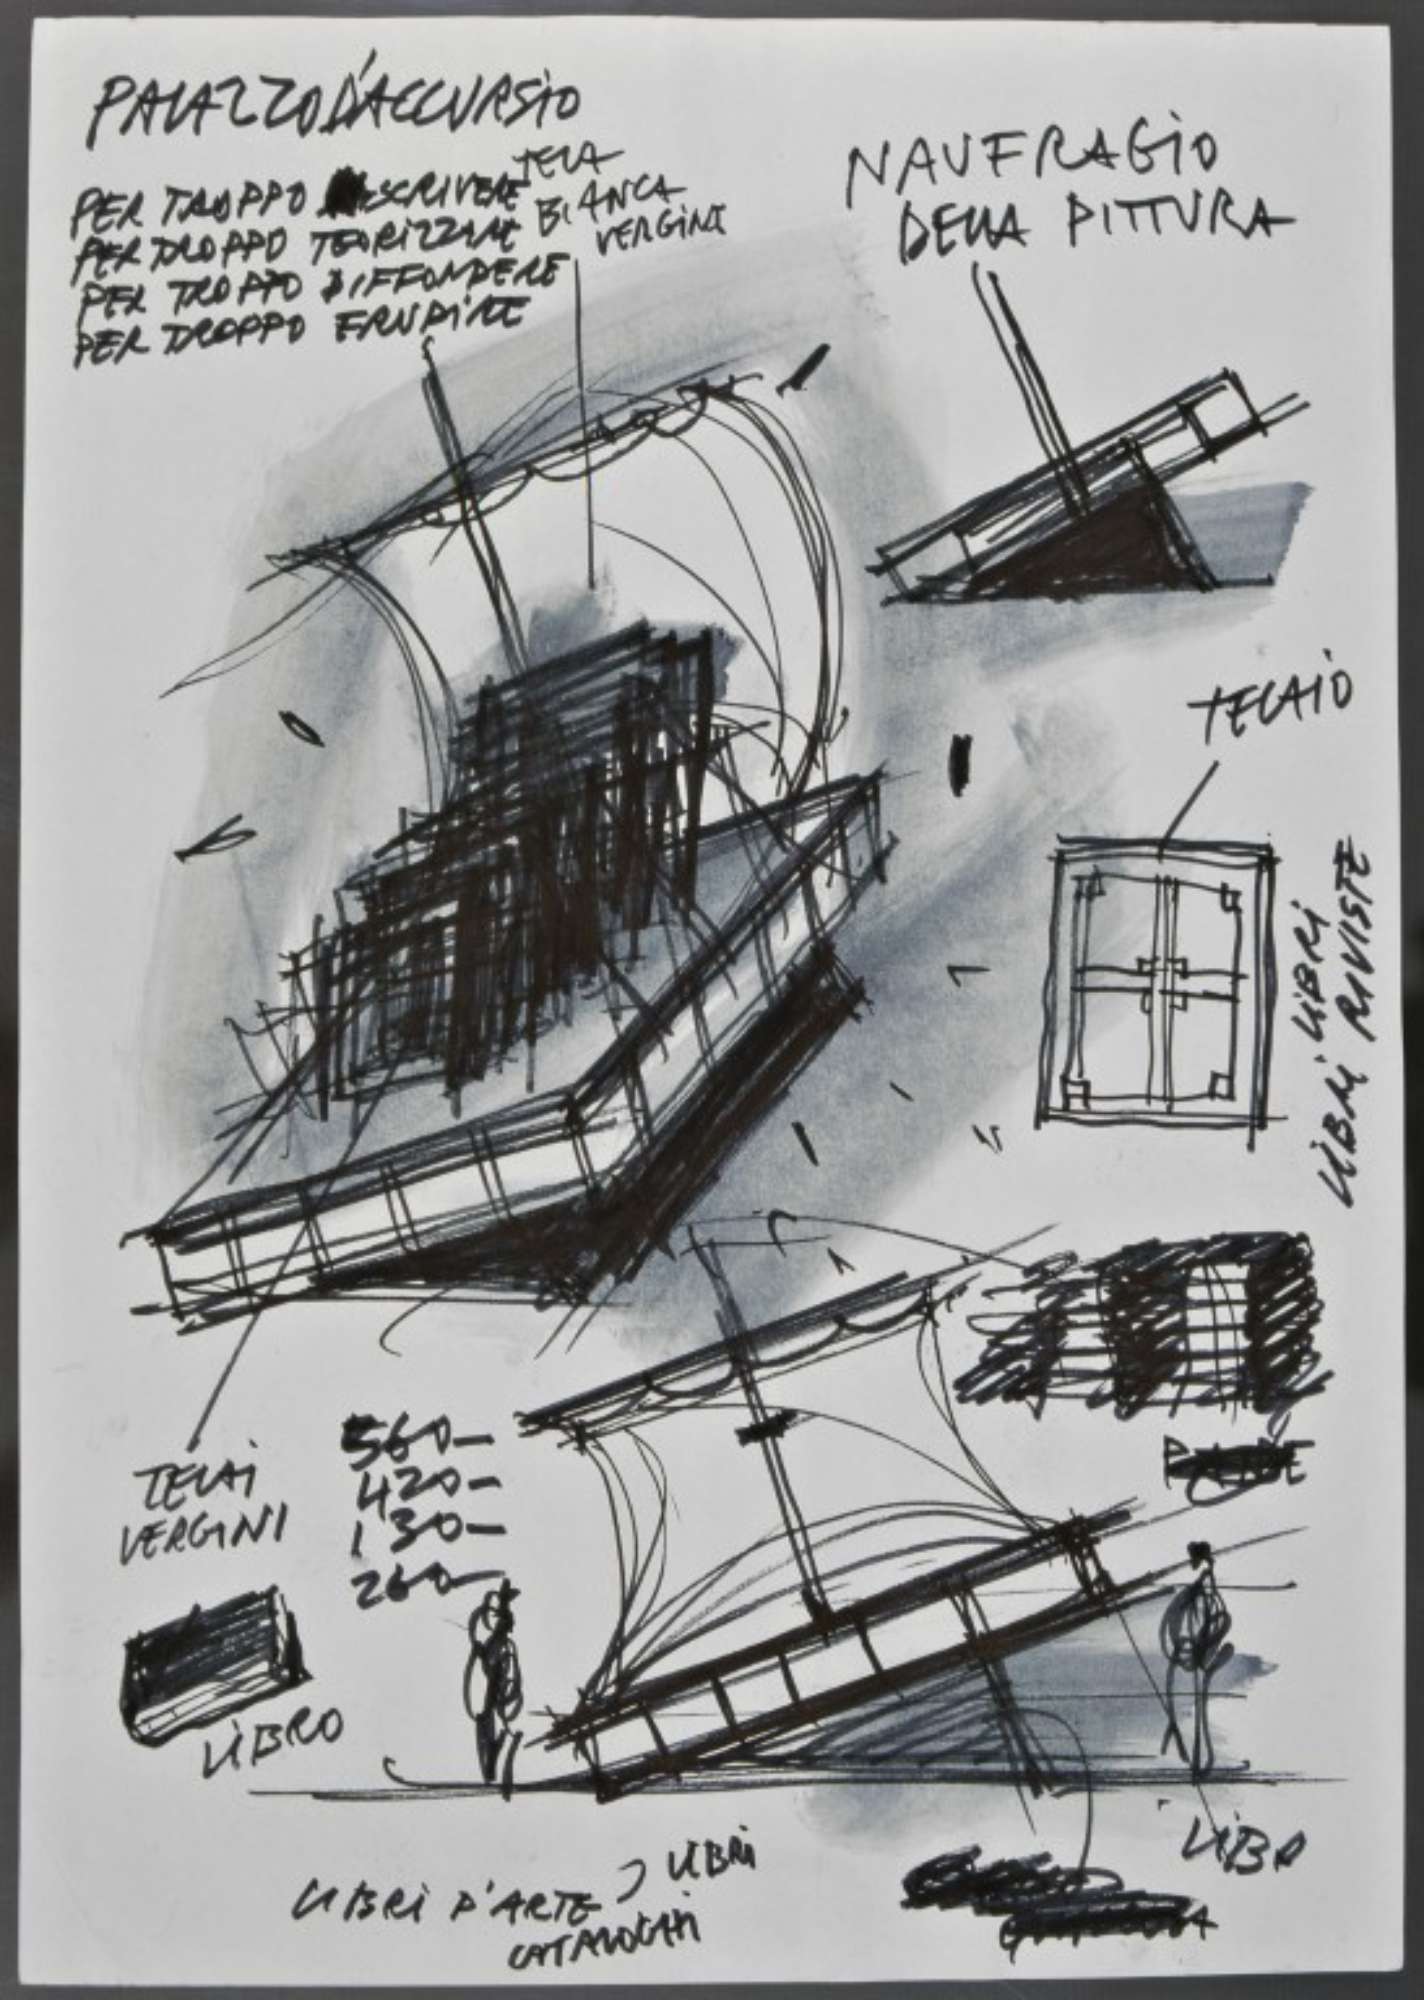 PALAZZO D'ACCURSIO
PER TROPPO SCRIVERE
PER TROPPO TEORIZZARE
PER TROPPO DIFFONDERE
PER TROPPO ERUDIRE
TELA
BIANCA
VERGINE
NAUFRAGIO
DELLA PITTURA
TELAIO
LIBRI
LIBRI RIVISTE
TELAI
VERGINI
560-
420-
130-
260-
LIBRO
LIBRI D'ARTE
LIBRI
CATALOGHI
LIBRO